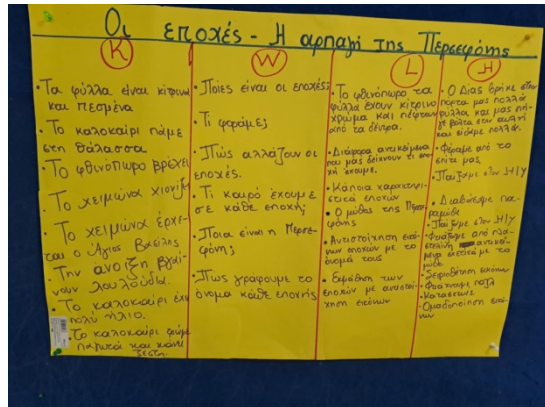 Οι εποχές - Η αρπαγή της Περσεφόνης
K
• Τα φύλλα είναι κίτρινα
και πεσμένα
• Το καλοκαίρι πάμε
στη θάλασσα
• Το φθινόπωρο βρέχει
• Το χειμώνα χιονίζει
• Το χειμώνα έρχε-
ται ο Άγιος Βασίλης
• Την άνοιξη βγαί-
νουν λουλούδια.
• Το καλοκαίρι έχει
πολύ ήλιο.
• Το καλοκαίρι τρώμε
παγωτά και κάνει
ζέστη
W
• Ποιες είναι οι εποχές;
• Τι φοράμε;
• Πώς αλλάζουν οι
εποχές.
• Τι καιρό έχουμε
σε κάθε εποχή;
• Ποια είναι η Περσε-
φόνη;
• Πως γράφουμε το
όνομα κάθε εποχής
L
• Το φθινόπωρο τα
φύλλα έχουν κίτρινο
χρώμα και πέφτουν
από τα δέντρα.
• Διάφορα αντικείμενα
που μας δείχνουν τι επο-
χή έχουμε.
• Κάποια χαρακτηρι-
στικά εποχών
• Ο μύθος της Περσε-
φόνης
• Αντιστοίχηση εικό-
νων εποχών με το
όνομά τους
• Εκμάθηση των
εποχών με αντιστοί-
χηση εικόνων
H
• Ο Δίας βρήκε στην
πόρτα μας πολλά
φύλλα και μας πή-
γε βόλτα στην αυλή
και είδαμε πολλά.
• Φέραμε από το
σπίτι μας
• Παίξαμε στον Η/Υ
• Διαβάσαμε πα-
ραμύθι
• Παίξαμε στον Η/Υ
• Φτιάξαμε από πλα-
στελίνη αντικεί-
μενα σχετικά με το
• Σειροθέτηση εικόνων
• Φτιάχνουμε παζλ
• Κατασκευές
• Ομαδοποίηση εικό-
νων